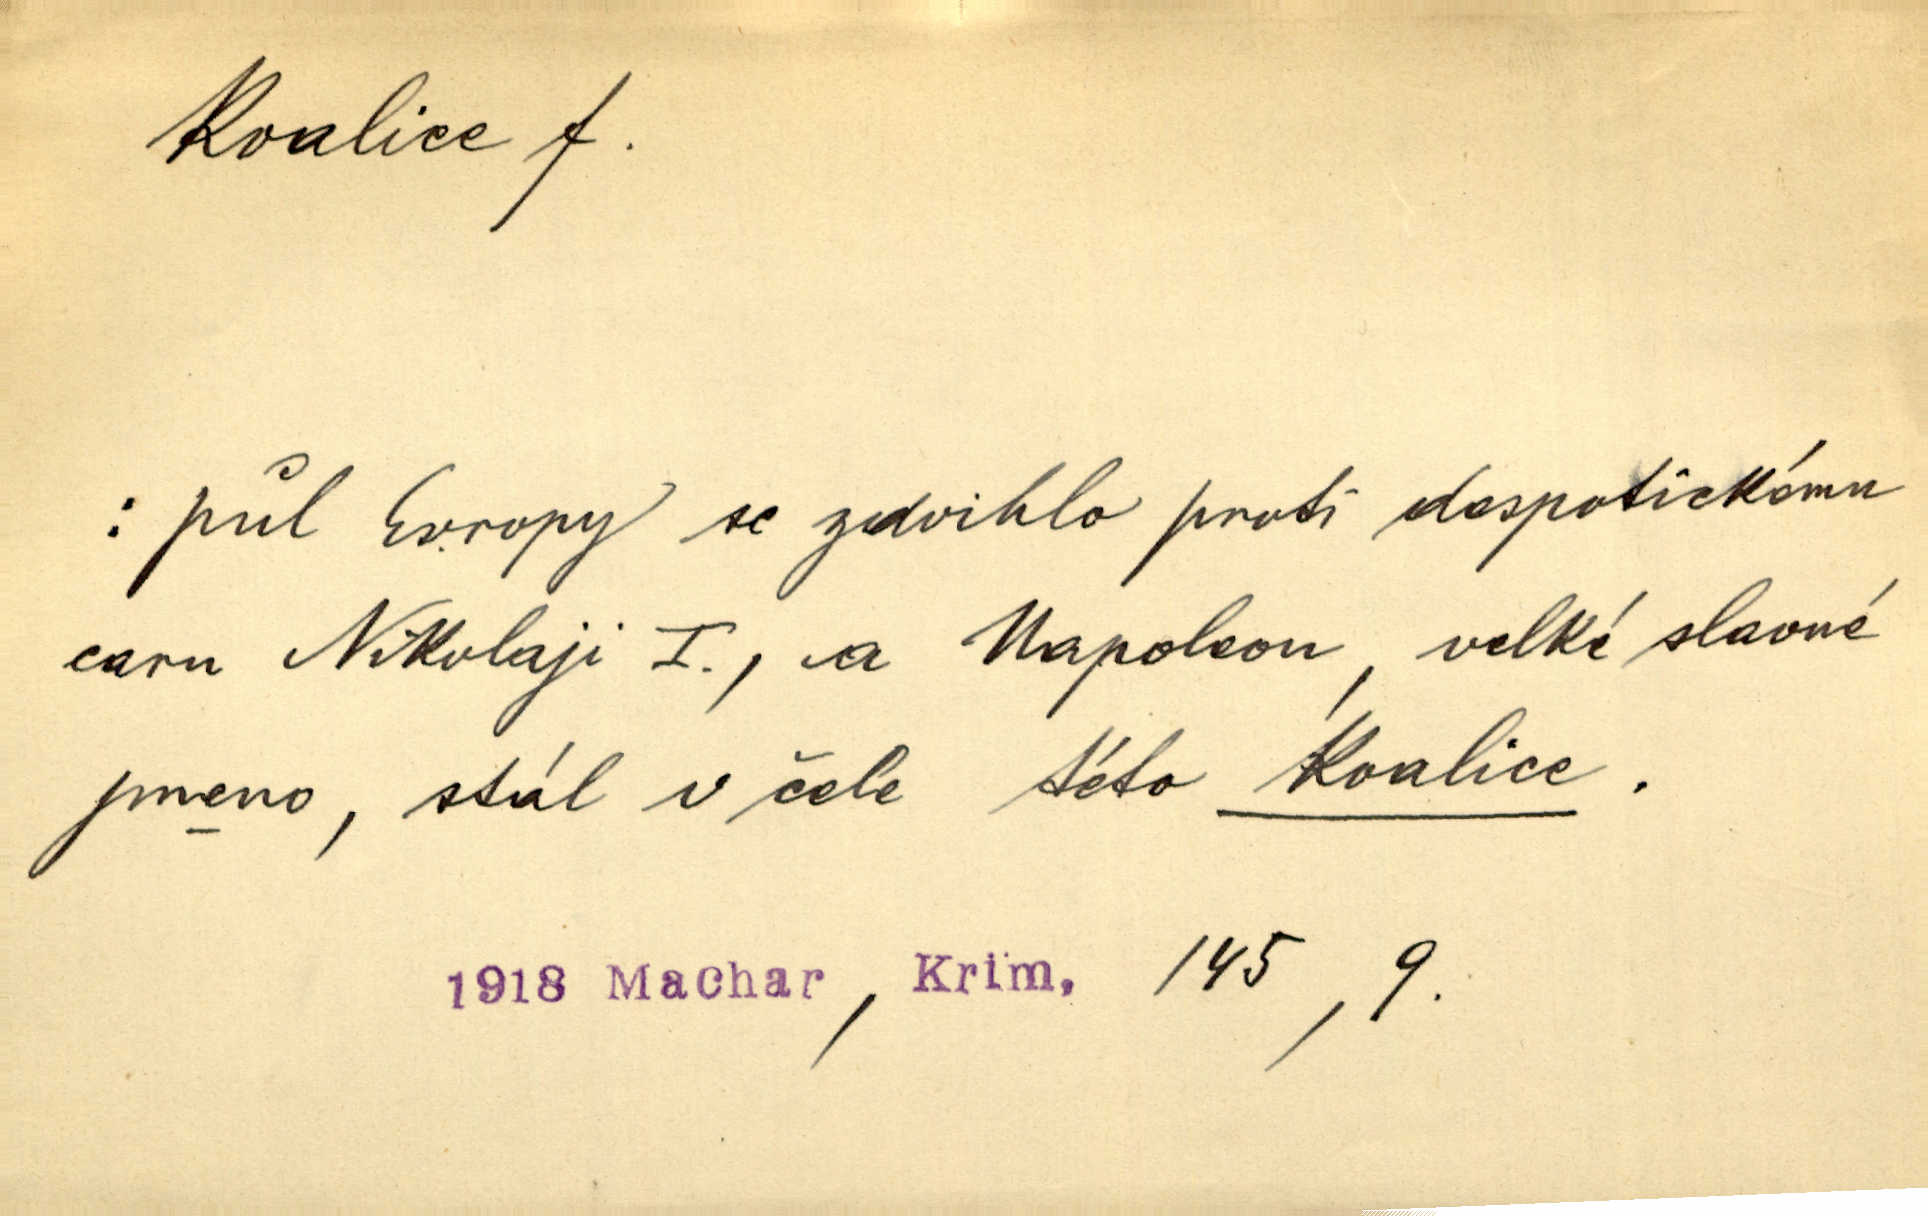 Koalice f.
: půl Evropy se zdvihlo proti despotickému
caru Nikolaji I., a Napoleon, velké slavné
jmeno, stál v čele této koalice.
1918 Machar, Krim, 145, 9.